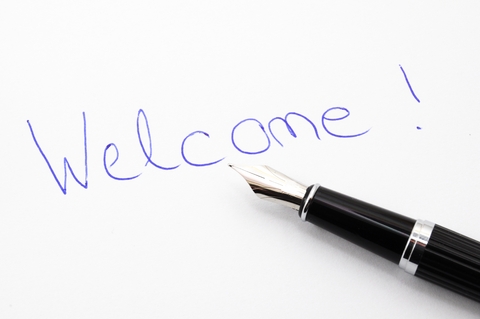 Welcome !